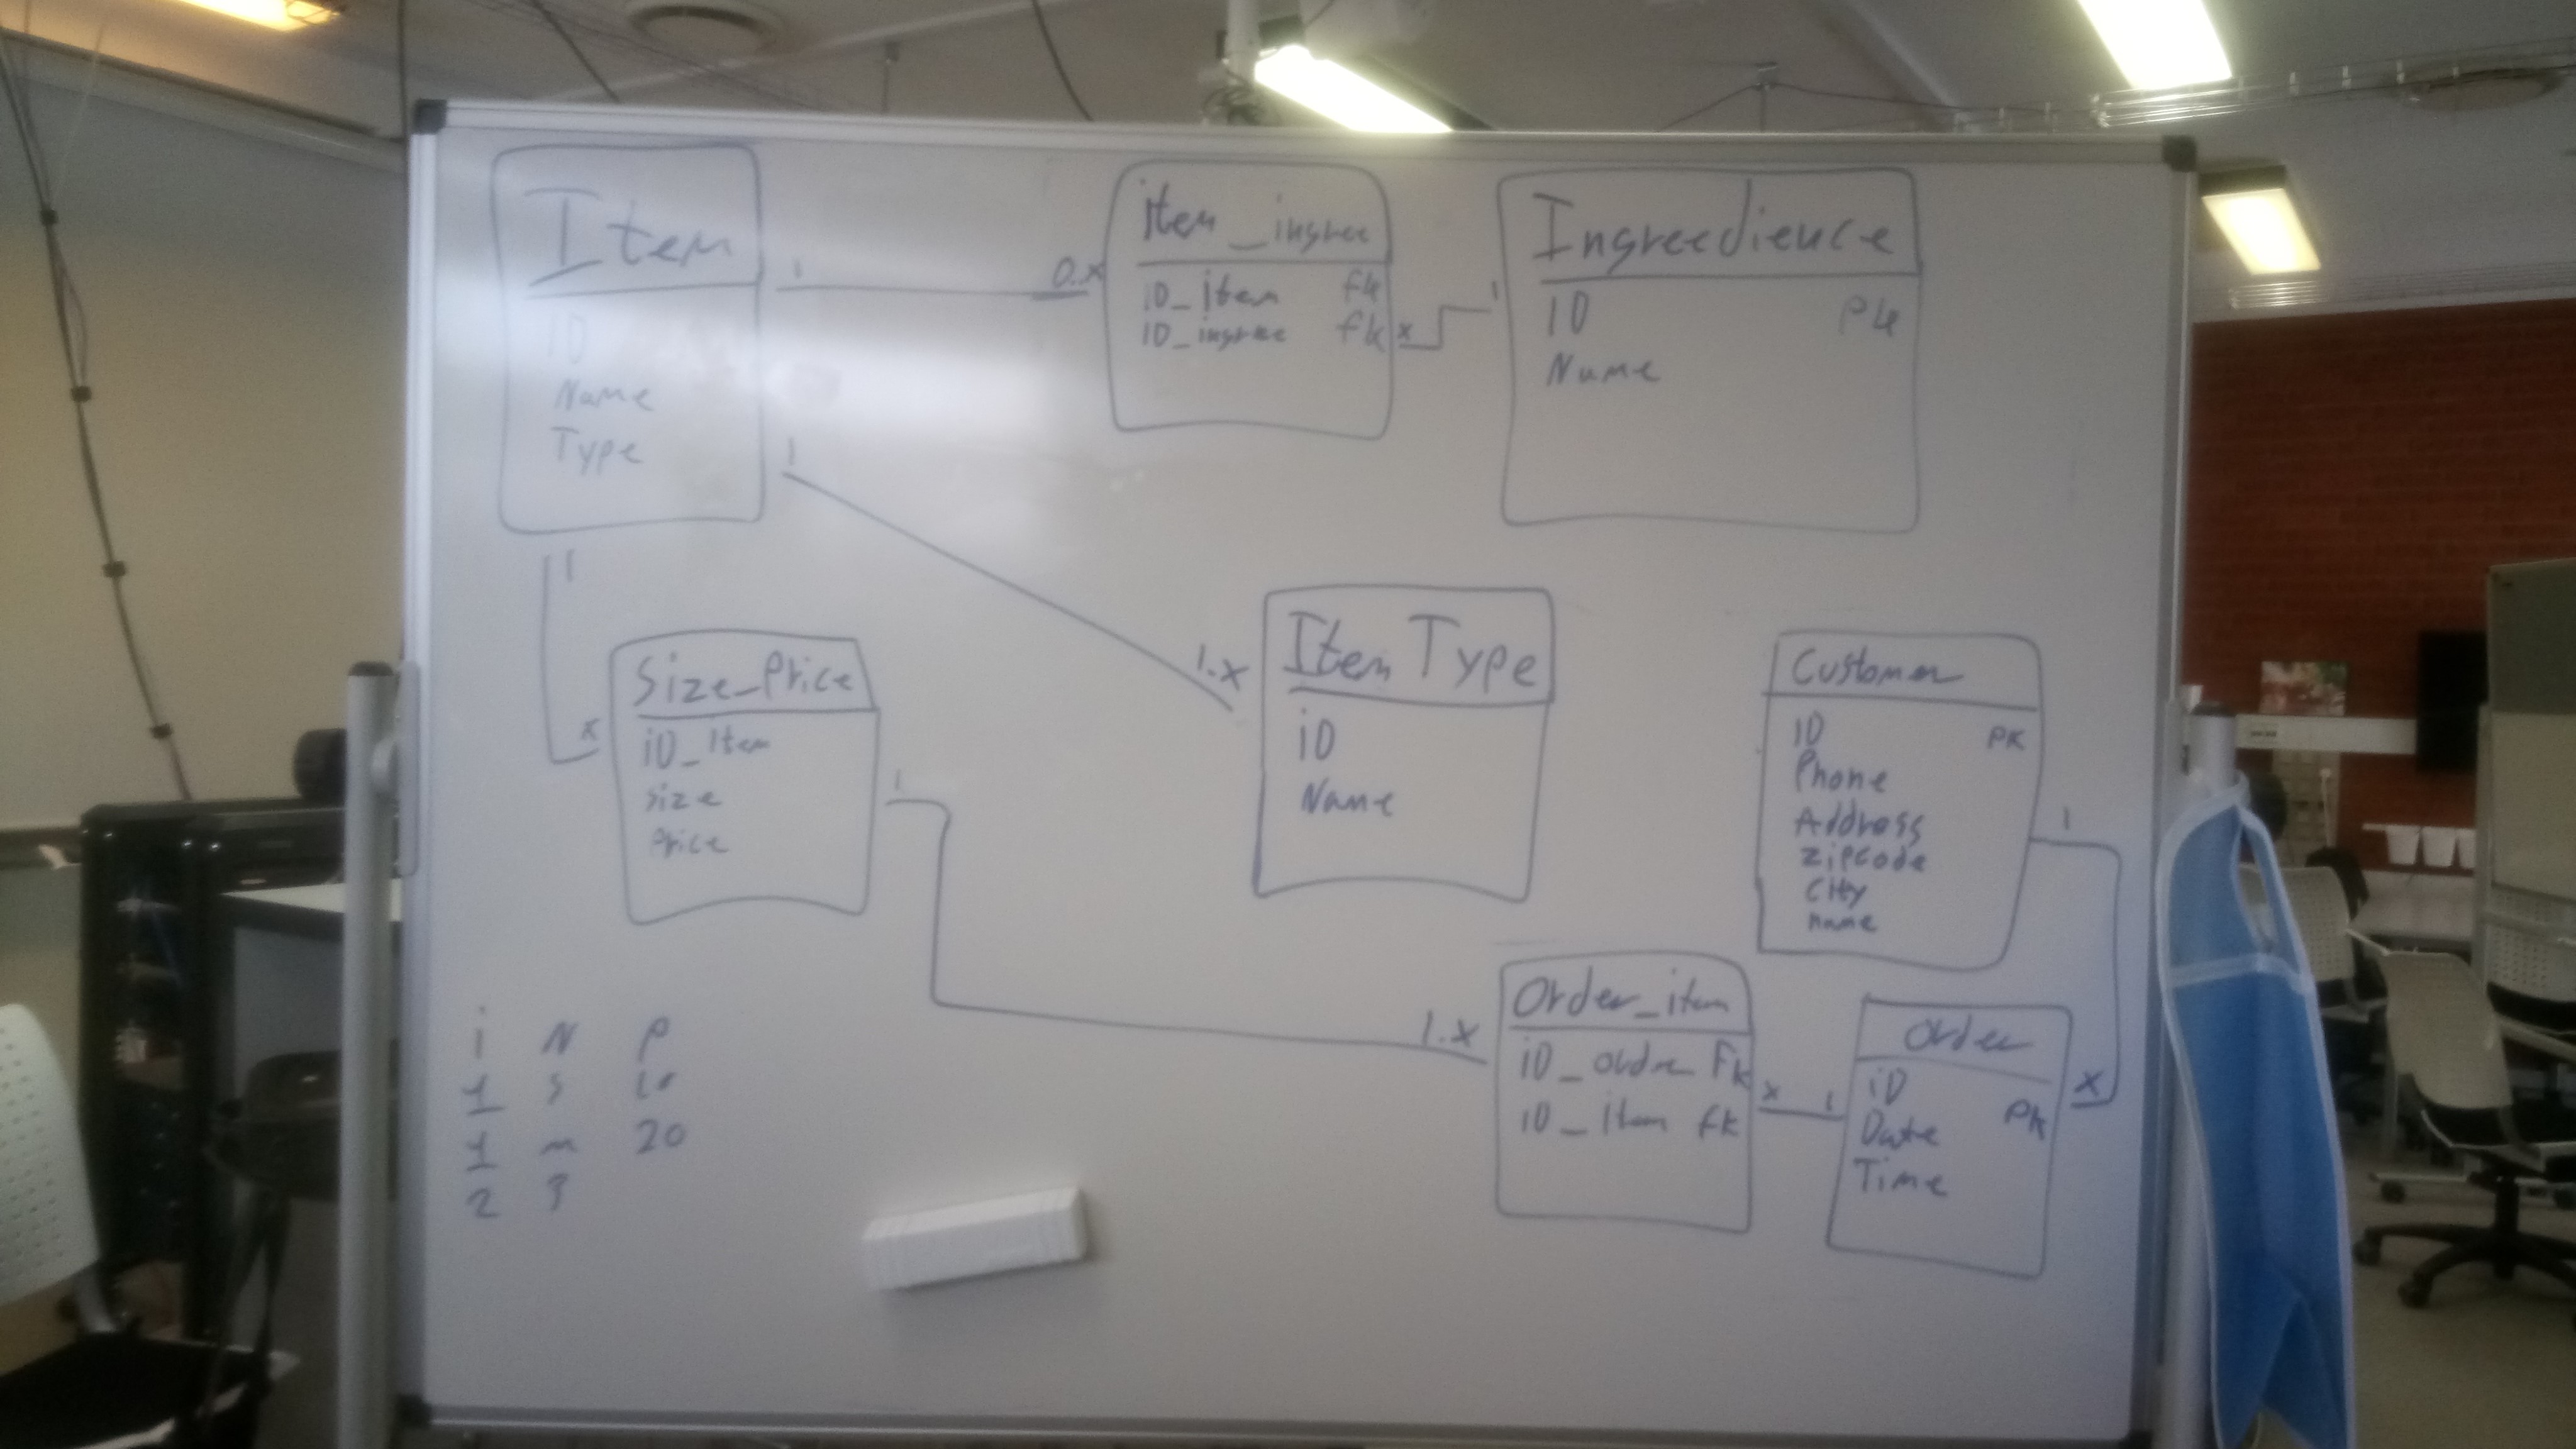 Item
ID
Name
Type
1
0..x
item_ingree
ID_item fk
ID_ingree fk
x
1
Ingreedience
ID Pk
Name
1
1.x
Item Type
iD
Name
1
x
Size_Price
iD_Item
size
Price
1
1.x
Customer
ID PK
Phone
Address
Zipcode
City
name
1
x
Order_item
iD_order Fk
iD_item fk
x
1
Order
iD Pk
Date
Time
i N P
1 S 10
1 m 20
2